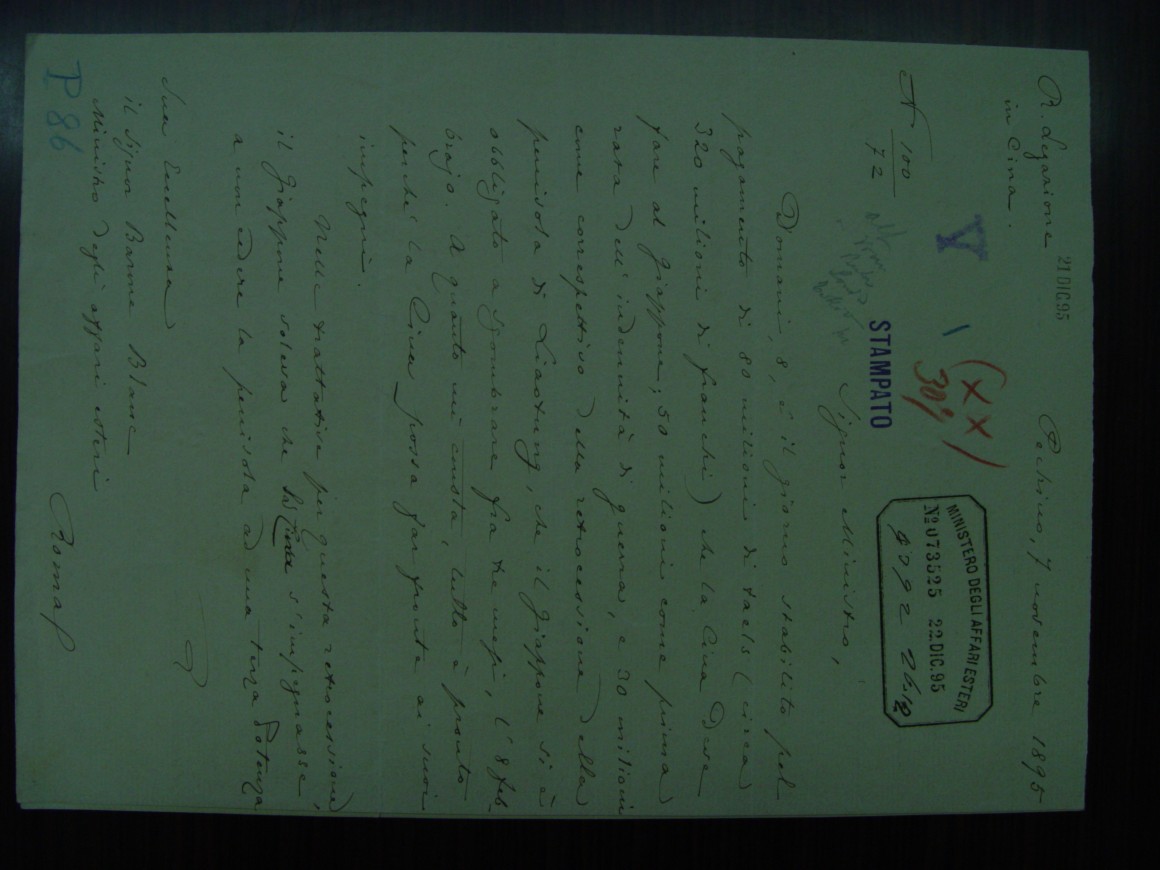 21 DIC 95
R. Legazione
in Cina.
Pechino, 7 novembre 1895
MINISTERO DEGLI AFFARI ESTERI
No 073525 22.DIC.95
V
(XX)
N 100
72
STAMPATO
Signor Ministro,
Domani, 8, è il giorno stabilito pel
pagamento di 80 milioni di taels (circa
320 milioni di franchi) che la Cina deve
fare al Giappone; 50 milioni come prima
rata dell'indennità di guerra, e 30 milioni
come correspettivo della retrocessione della
penisola di Liaotung, che il Giappone si è
obbligato a sgombrare fra tre mesi, l'8 feb-
brajo. A quanto mi consta, tutto è pronto
perchè la Cina possa far fronte ai suoi
impegni.
Nelle trattative per questa retrocessione,
il Giappone voleva che la Cina s'impegnasse
a non cedere la penisola ad una terza Potenza
Sua Eccellenza
il Signor Barone Blanc
Ministro degli affari esteri
Roma
P 86